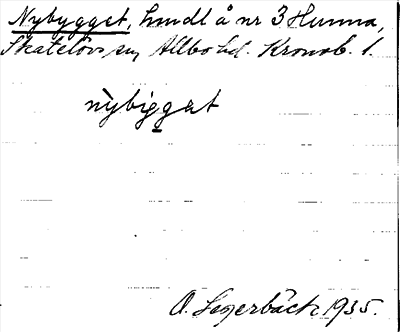 Nybygget, hmdl å nr 3 Hunna,
Skatelövs sn, Allbo hd. Kronob. l.
nybigget
A. Segerbäck 1935.